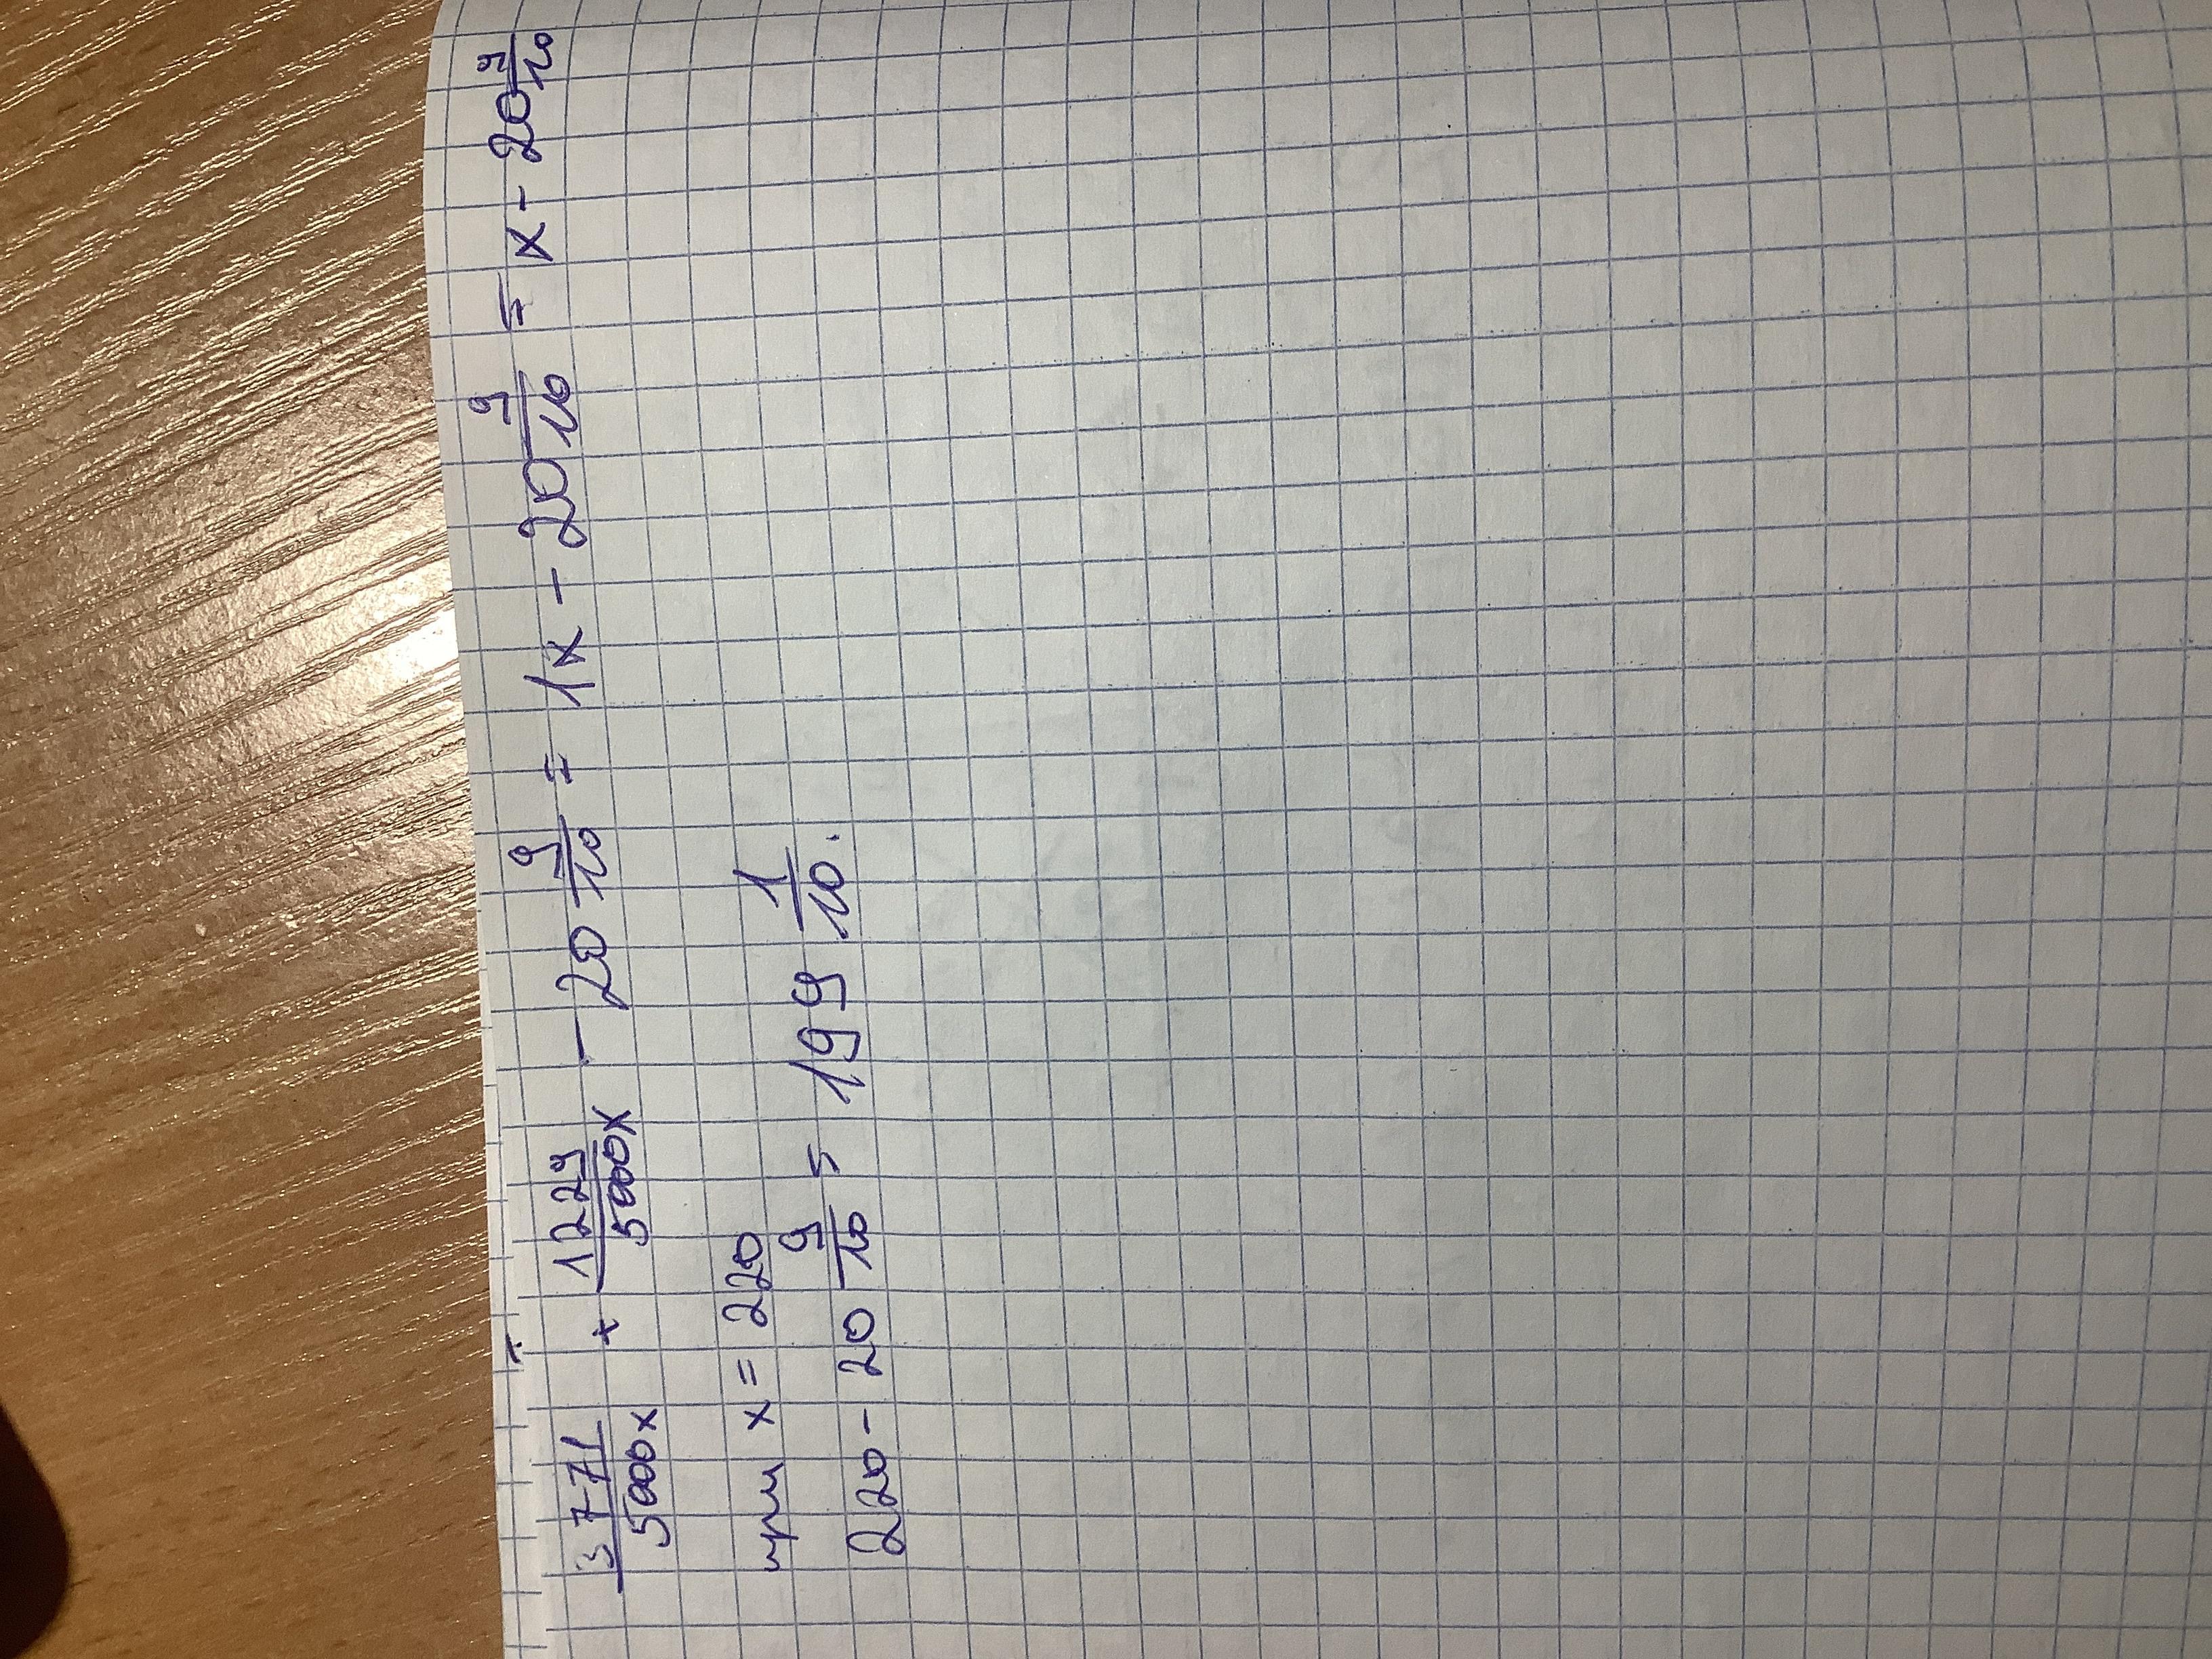 3771/5000x + 1229/5000x - 20 9/10 = 1x - 20 9/10 = x - 20 9/10
при x = 220
220 - 20 9/10 = 199 1/10.